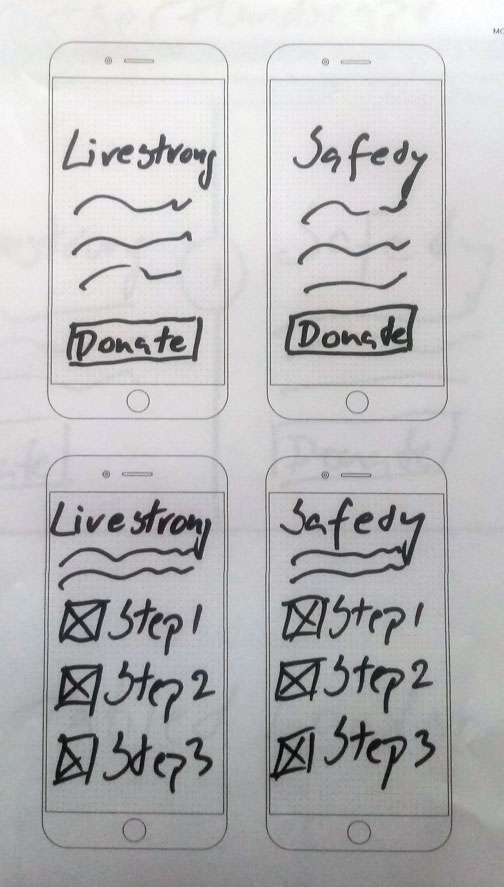 Livestrong
Donate
Safedy
Donade
Livestrong
Step 1
Step 2
Step 3
Safedy
Step 1
Step 2
Step 3